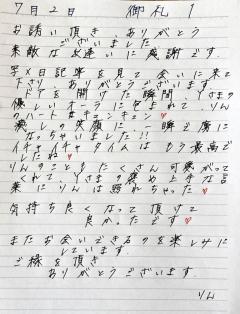 7月2日 御札 1
お誘い頂き、ありがとう
ございました
素敵な出逢いに感謝です。
写メ日記等を見て会いに来て
下さり、ありがとうございます
ドアを開けた瞬間、Yさまの
優しいオーラに包まれて、りん
のハートはキュンキュン♥
癒しの笑顔に、一瞬で虜に
なっちゃいました!!
イチャイチャタイムはもう最高で
したね♥
りんのこともたくさん可愛がって
くれて、Yさまの褒め上手な言
葉にりんは照れちゃった♥
気持ち良くなって頂けて
良かったです♥
またお会いできるのを楽しみに
しています。
ご縁を頂き
ありがとうございます
りん